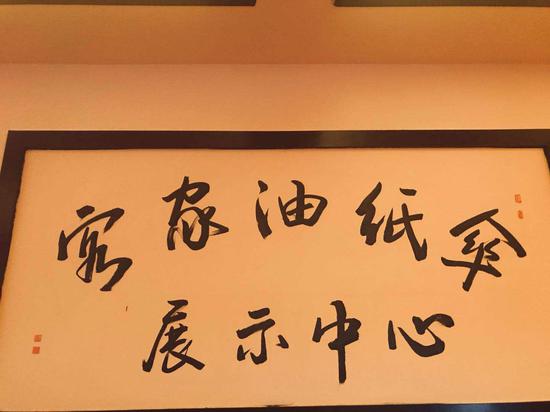 客家油纸伞
展示中心